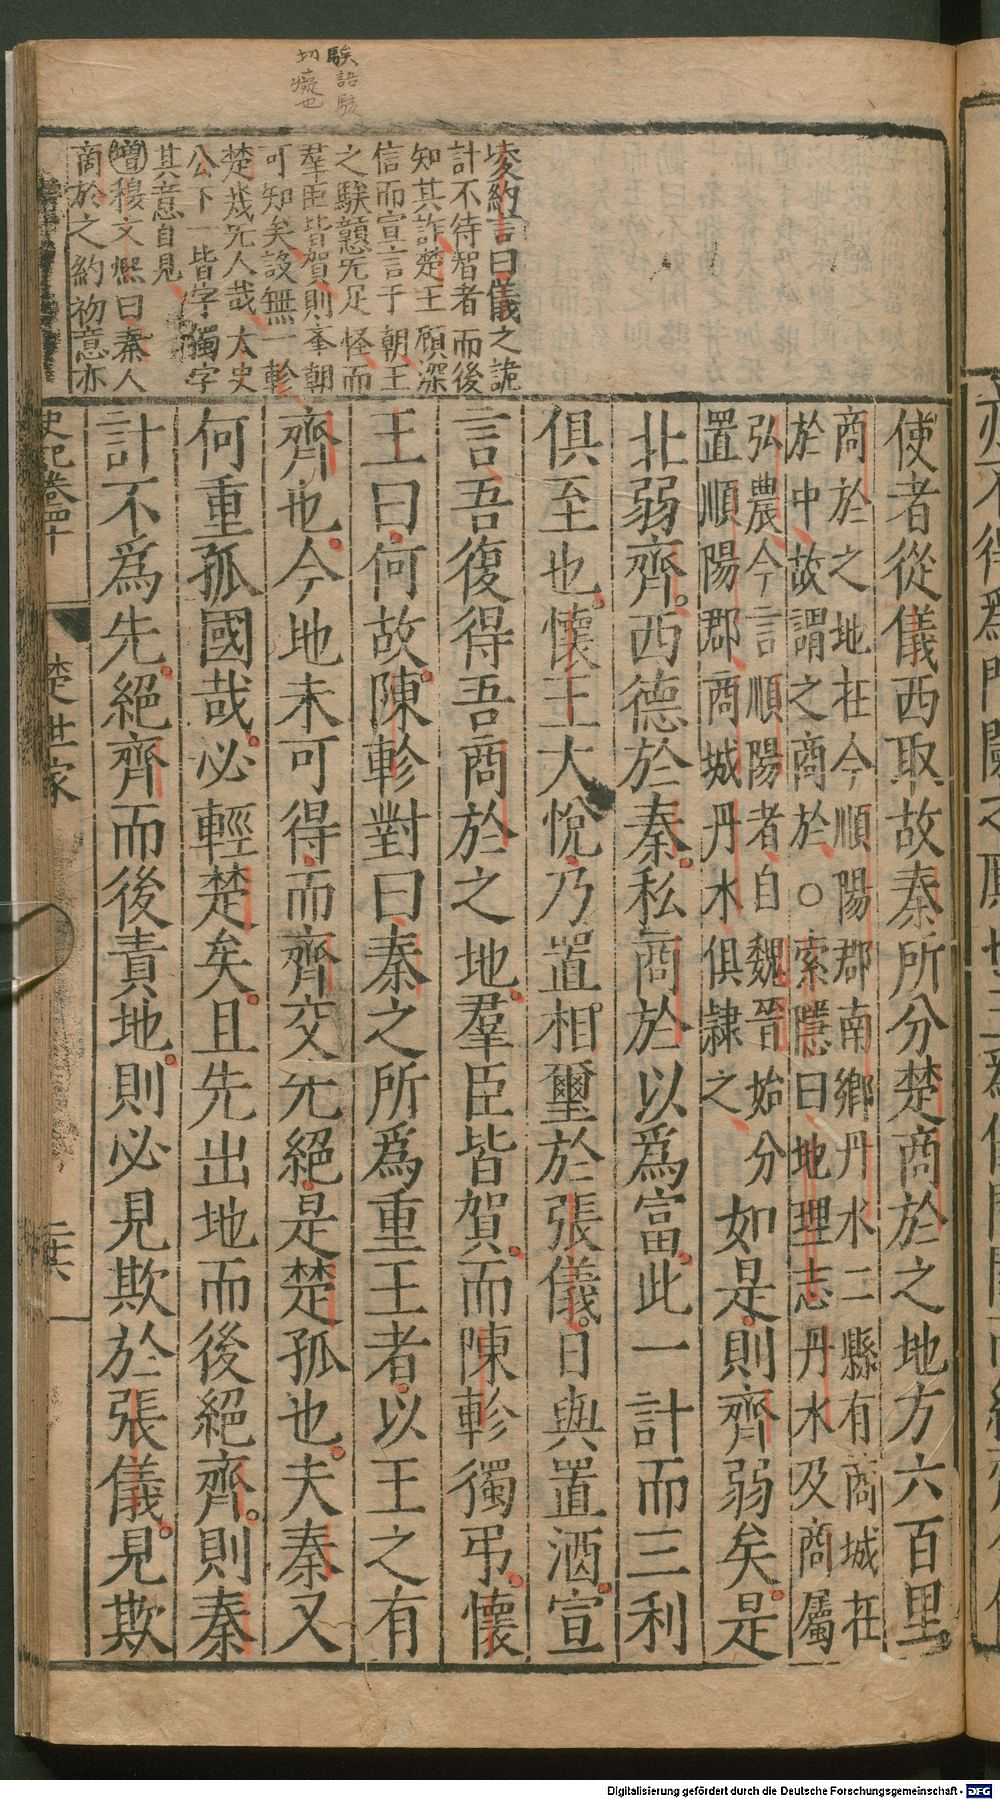 騃語駭
切癡也
凌約言曰儀之詭
計不待智者而後
知其詐楚王願深
信而宣言于朝王
之騃戇旡足怪而
羣臣皆賀則舉朝
可知矣設無一軫
楚幾旡人哉太史
公下一皆字獨字
其意自見
增穆文熙曰秦人
商於之約初意亦
使者從儀西取故秦所分楚商於之地方六百里
商於之地在今順陽郡南鄉丹水二縣有商城在
於中故謂之商於○索隱曰地理志丹水及商屬
弘農今言順陽者自魏晉始分
置順陽郡商城丹水俱隸之
如是則齊弱矣是
北弱齊西德於秦私商於以為富此一計而三利
俱至也懷王大悅乃置相璽於張儀日與置酒宣
言吾復得吾商於之地羣臣皆賀而陳軫獨弔懷
王曰何故陳軫對曰秦之所為重王者以王之有
齊也今地未可得而齊交先絕是楚孤也夫秦又
何重孤國哉必輕楚矣且先出地而後絕齊則秦
計不為先絕齊而後責地則必見欺於張儀見欺
史記卷四十
楚世家
Digitalisierung gefördert durch die Deutsche Forschungsgemeinschaft - DFG